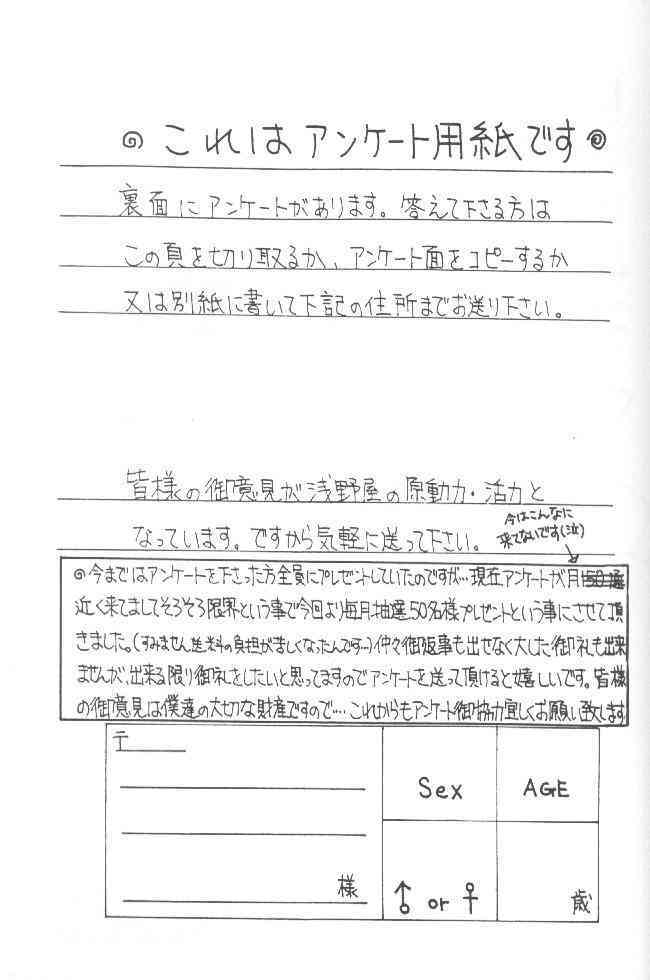 ◎ これはアンケート用紙です ◎
裏面にアンケートがあります。答えて下さる方は
この頁を切り取るか、アンケート面をコピーするか
又は別紙に書いて下記の住所までお送り下さい。
皆様の御意見が浅野屋の原動力・活力と
なっています。ですから気軽に送って下さい。
今はこんなに
来てないです(泣)
◎今まではアンケートを下さった方全員にプレゼントしていたのですが…現在アンケートが月150通
近く来てましてそろそろ限界という事で今回より毎月抽選50名様プレゼントという事にさせて頂
きました。(すみません送料の負担が苦しくなったんですー)仲々御返事も出せなく大した御礼も出来
ませんが、出来る限り御礼をしたいと思ってますのでアンケートを送って頂けると嬉しいです。皆様
の御意見は僕達の大切な財産ですので…これからもアンケート御協力宜しくお願い致します
〒
様
Sex
AGE
♂ or ♀
歳